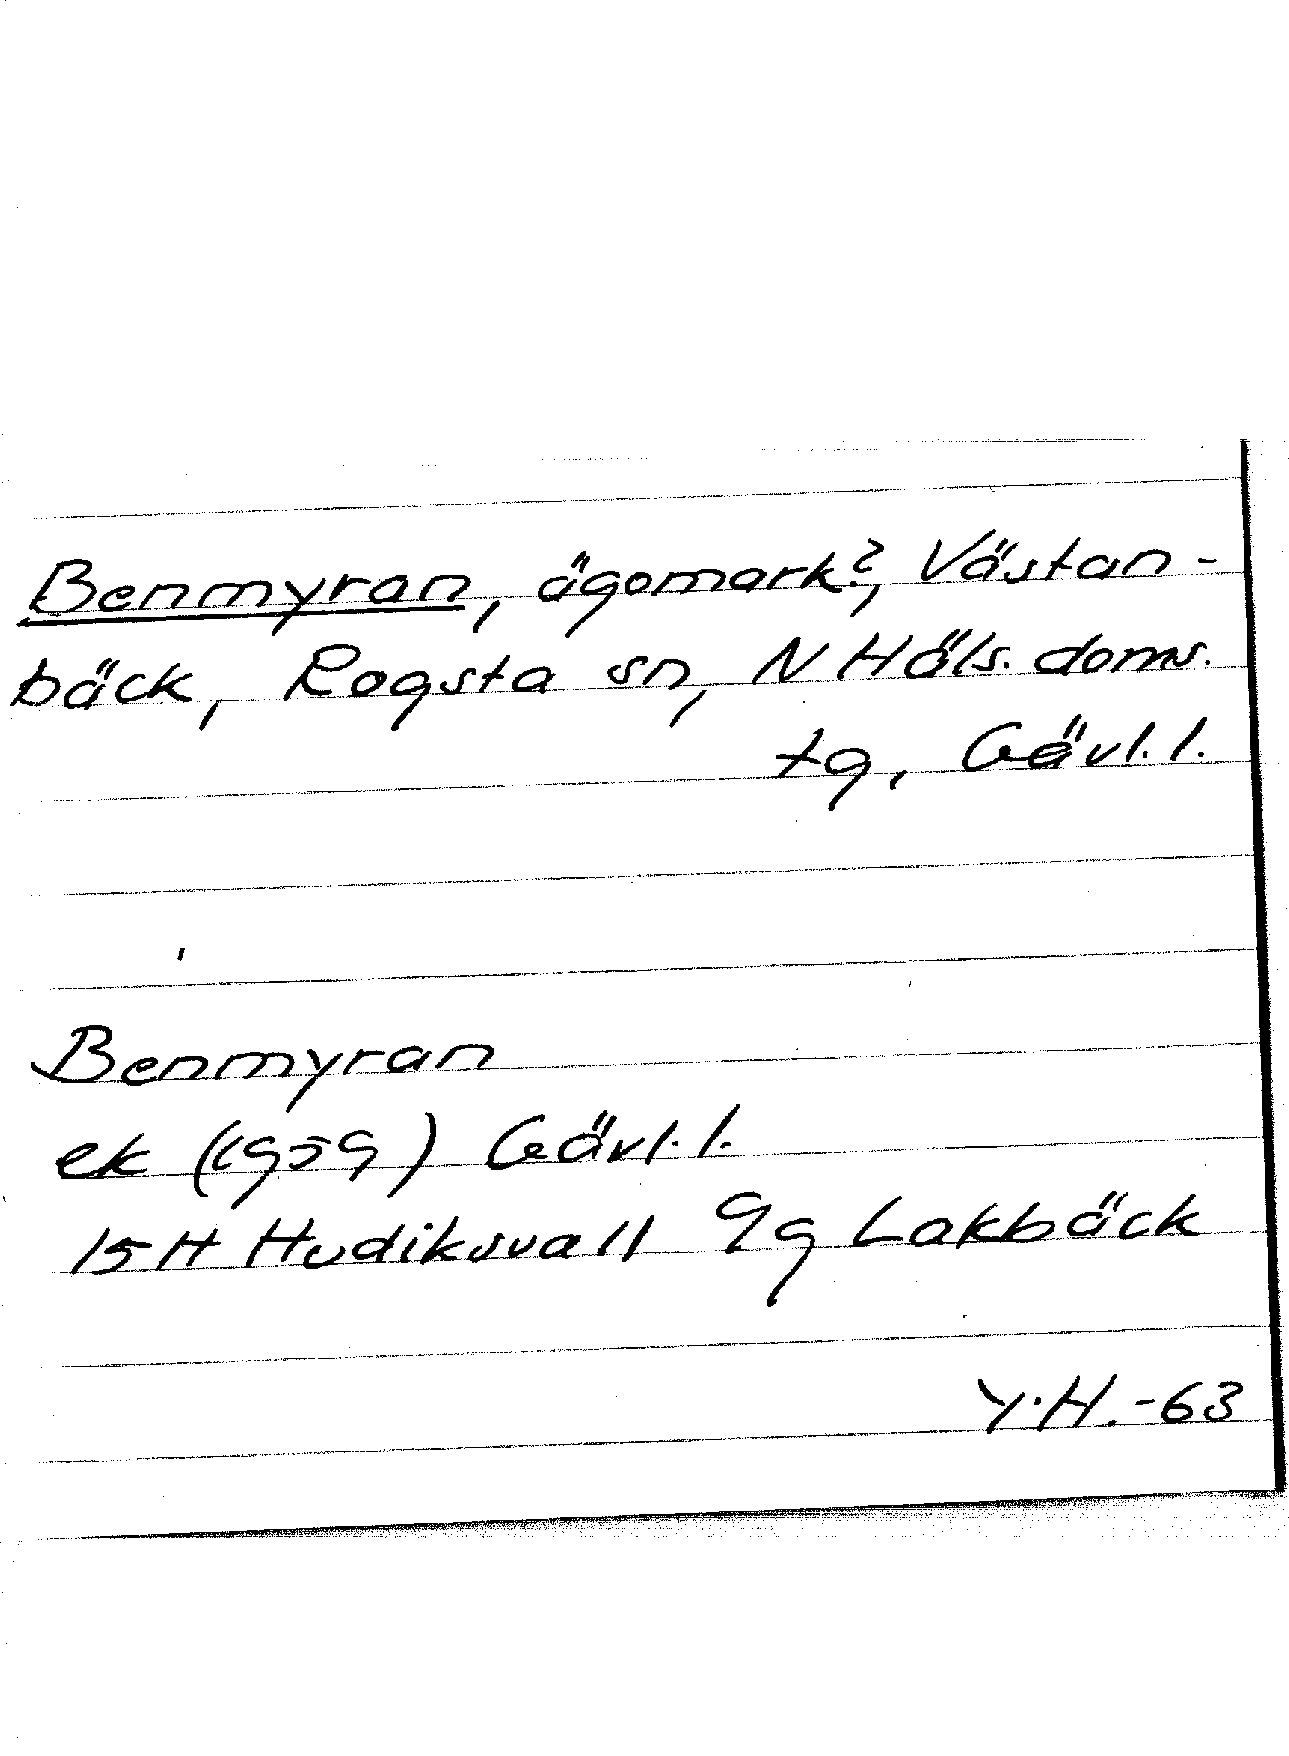 Benmyran, ägomark?, Västan-
bäck, Rogsta sn, N Häls. doms.
tg, Gävl. l.
Benmyran
ek (1959) Gävl. l.
15 H Hudiksvall 9g Lakbäck
Y.H. -63